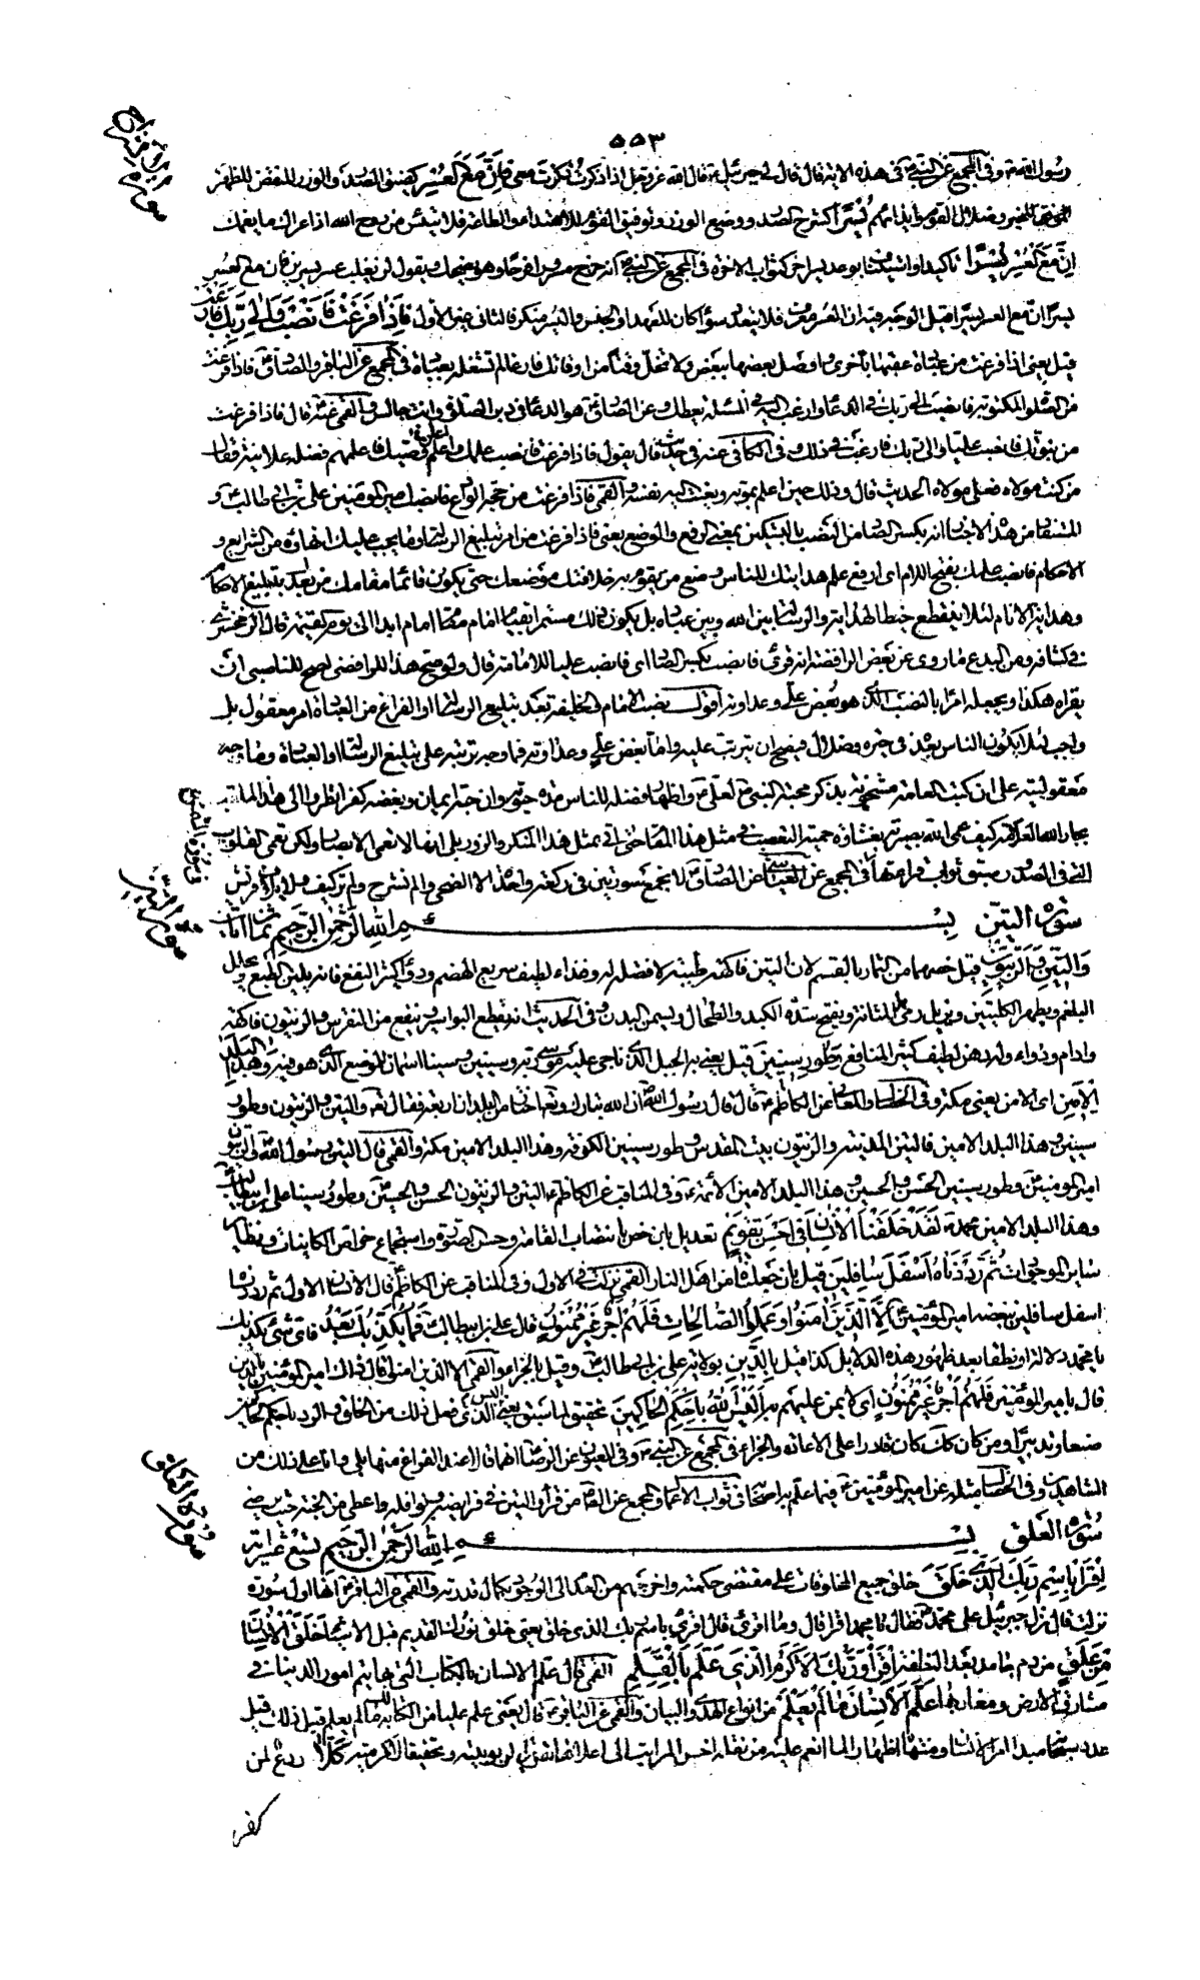 ٥٥٣
رسول الله وفى المجمع عن النبى فى هذه الاية قال قال لى جبرئيل قال الله عز وجل اذا ذكرت ذكرت معى فَاِنَّ مَعَ الْعُسْرِ كضيق الصدر والوزر المنقض للظهر
وضلال القوم وايذائهم يُسْرًا كشرح الصدر ووضع الوزر وتوفيق القوم للاهتداء والطاعة فلا تيئس من روح الله اذا عراك ما يغمك
اِنَّ مَعَ الْعُسْرِ يُسْرًا تأكيد او استيناف بوعد يسر اخر كثواب الاخرة فى المجمع عن النبى انه خرج مسرورا فرحا وهو يضحك ويقول لن يغلب عسر يسرين فان مع العسر
يسرا ان مع العسر يسرا قيل الوجه فيه ان العسر معرف فلا يتعدد سواء كان للعهد او الجنس واليسر منكر فالثانى غير الاول فَاِذَا فَرَغْتَ فَانْصَبْ وَاِلى رَبِّكَ فَارْغَبْ
قيل يعنى اذا فرغت من عبادة عقبها باخرى واوصل بعضها ببعض ولا تخل وقتا من اوقاتك فارغا لم تشغله بعبادة فى المجمع عن الباقر والصادق فاذا فرغت
من الصلوة المكتوبة فانصب الى ربك فى الدعاء وارغب اليه فى المسئلة يعطك وعن الصادق هو الدعاء فى دبر الصلوة وانت جالس والقمى عنه قال فاذا فرغت
من نبوتك فانصب عليا والى ربك فارغب فى ذلك وفى الكافى عنه فى حديث قال يقول فاذا فرغت فانصب علمك واعلن وصيك فاعلمهم فضله علانية فقال
من كنت مولاه فعلى مولاه الحديث قال وذلك حين اعلم بموته ونعيت اليه نفسه والقمى فاذا فرغت من حجة الوداع فانصب امير المؤمنين على بن ابى طالب و
المستفاد من هذه الاخبار انه بكسر الصاد من النصب بالتسكين بمعنى الرفع والوضع يعنى فاذا فرغت من امر تبليغ الرسالة وما يجب عليك انهاؤه من الشرايع و
الاحكام فانصب علمك بفتح اللام اى ارفع علم هدايتك للناس وضع من يقوم به خلافتك موضعك حتى يكون قائما مقامك من بعدك بتبليغ الاحكام
وهداية الانام لئلا ينقطع خيط الهداية والرسالة بين الله وبين عباده بل يكون ذلك مستمرا بقيام امام مقام امام ابدا الى يوم القيمة قال الزمخشرى
فى كشافه ومن البدع ما روى عن بعض الرافضة انه قرئ فانصب بكسر الصاد اى فانصب عليا للامامة قال ولو صح هذا للرافضى لصح للناصبى ان
يقراه هكذا ويجعله امرا بالنصب الذى هو بغض على وعداوته اقول نصب الامام والخليفة بعد تبليغ الرسالة او الفراغ من العبادة امر معقول بل
واجب لئلا يكون الناس بعده فى حيرة وضلال فيصح ان يترتب عليه واما بغض على وعداوته فما وجه ترتبه على تبليغ الرسالة او العبادة وما وجه
معقوليته على ان كتب العامة مشحونة بذكر محبة النبى لعلى واظهاره فضله للناس مدة حيوته وان حبه ايمان وبغضه كفر انظروا الى هذا الملقب
بجار الله العلامة كيف عمى الله بصيرته بغشاوة حمية التعصب فى مثل هذا المقام حتى اتى بمثل هذا المنكر والزور بلى انها لا تعمى الابصار ولكن تعمى القلوب
التى فى الصدور سبق ثواب قراءتها فى المجمع عن العياشى عن الصادق لا تجمع سورتين فى ركعة واحدة الا الضحى والم نشرح والم تر كيف ولايلاف قريش
سُورَةُ التّين بِسْمِ اللهِ الرَّحْمنِ الرَّحيمِ ثمان ايات
وَالتّينِ وَالزَّيْتُونِ قيل خصهما من الثمار بالقسم لان التين فاكهة طيبة لا فضل له وغذاء لطيف سريع الهضم ودواء كثير النفع فانه يلين الطبع ويحلل
البلغم ويطهر الكليتين ويزيل رمل المثانة ويفتح سدة الكبد والطحال ويسمن البدن وفى الحديث انه يقطع البواسير وينفع من النقرس والزيتون فاكهة
وادام ودواء وله دهن لطيف كثير المنافع وَطُورِ سِينِينَ قيل يعنى به الجبل الذى ناجى عليه موسى ربه وسينين وسيناء اسمان للموضع الذى هو فيه وَهذَا الْبَلَدِ
الْاَمينِ اى الامن يعنى مكة وفى الخصال والمعانى عن الكاظم قال قال رسول الله ان الله تبارك وتعالى اختار من البلدان اربعة فقال تعالى والتين والزيتون وطور
سينين وهذا البلد الامين فالتين المدينة والزيتون بيت المقدس وطور سينين الكوفة وهذا البلد الامين مكة والقمى قال التين رسول الله والزيتون
امير المؤمنين وطور سينين الحسن والحسين وهذا البلد الامين الائمة وفى المناقب عن الكاظم التين والزيتون الحسن والحسين وطور سينين على بن ابيطالب
وهذا البلد الامين محمد لَقَدْ خَلَقْنَا الْاِنْسانَ فى اَحْسَنِ تَقْويمٍ تعديل بان خص بانتصاب القامة وحسن الصورة واستجماع خواص الكاينات ونظاير
ساير الموجودات ثُمَّ رَدَدْناهُ اَسْفَلَ سافِلينَ قيل بان جعلناه من اهل النار القمى نزلت فى الاول وفى المناقب عن الكاظم قال الانسان الاول ثم رددناه
اسفل سافلين ببغضه امير المؤمنين اِلَّا الَّذينَ امَنُوا وَعَمِلُوا الصَّالِحاتِ فَلَهُمْ اَجْرٌ غَيْرُ مَمْنُونٍ قال على بن ابيطالب فَما يُكَذِّبُكَ بَعْدُ فاى شئ يكذبك
يا محمد دلالة او نطقا بعد ظهور هذه الدلايل كذا قيل بِالدّينِ بولاية على بن ابى طالب وقيل بالجزاء والقمى الا الذين امنوا قال ذاك امير المؤمنين بالدين
قال بامير المؤمنين فَلَهُمْ اَجْرٌ غَيْرُ مَمْنُونٍ اى لا يمن عليهم به اَلَيْسَ اللهُ بِاَحْكَمِ الْحاكِمينَ تحقيق لما سبق يعنى اليس الذى فعل ذلك من الخلق والرد باحكم الحاكمين
صنعا وتدبيرا ومن كان كذلك كان قادرا على الاعادة والجزاء فى المجمع عن النبى وفى العيون عن الرضا انهما قالا عند الفراغ منها بلى وانا على ذلك من
الشاهدين وفى الخصال مثله عن امير المؤمنين فيما علم به اصحابه فى ثواب الاعمال والمجمع عن الصادق من قرأ والتين فى فرايضه ونوافله واعطى من الجنة حيث يرضى
سُورَةُ العَلَق بِسْمِ اللهِ الرَّحْمنِ الرَّحيمِ تسع عشر اية
اِقْرَأْ بِاسْمِ رَبِّكَ الَّذى خَلَقَ خلق جميع المخلوقات على مقتضى حكمته واخرجهم من العدم الى الوجود بكمال قدرته والقمى عن الباقر انها اول سورة
نزلت قال نزل جبرئيل على محمد فقال يا محمد اقرأ قال وما اقرئ قال اقرأ باسم ربك الذى خلق يعنى خلق نورك القديم قبل الاشياء خَلَقَ الْاِنْسانَ
مِنْ عَلَقٍ من دم جامد بعد النطفة اِقْرَأْ وَرَبُّكَ الْاَكْرَمُ الَّذى عَلَّمَ بِالْقَلَمِ القمى قال علم الانسان بالكتاب التى بها يتم امور الدنيا فى
مشارق الارض ومغاربها عَلَّمَ الْاِنْسانَ ما لَمْ يَعْلَمْ من انواع الهدى والبيان والقمى عن الباقر قال يعنى علم عليا من الكتابة لك ما لم يعلم قبل ذلك قيل
عدد سبحانه مبدأ امر الانسان ومنتهاه اظهارا لما انعم عليه من نقله من اخس المراتب الى اعلاها تقريرا لربوبيته وتحقيقا لاكرميته كَلَّا ردع لمن
كفر
سورة الانشراح
سورة التين
سورة العلق